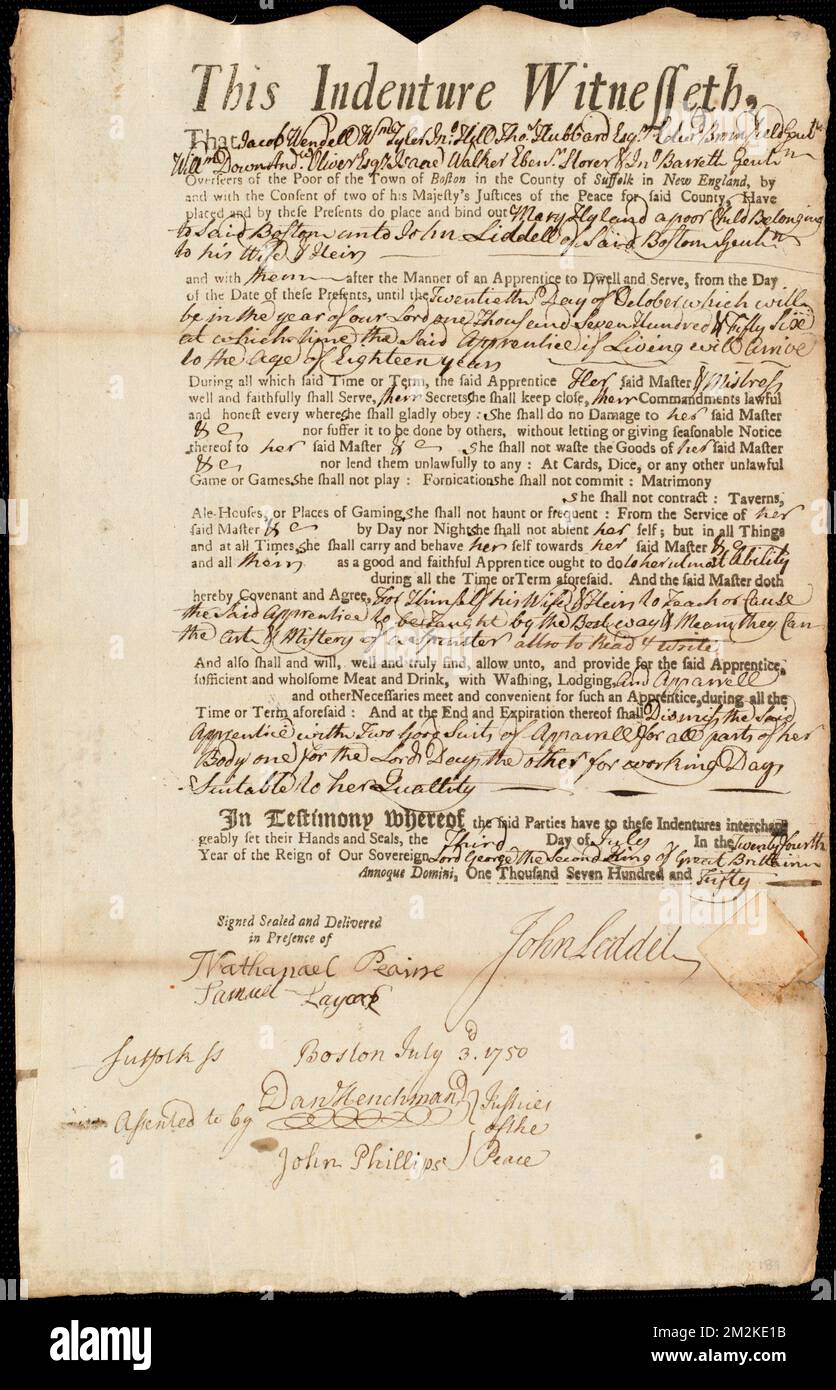 This Indenture Witnesseth,
That Jacob Wendell Wm. Tyler Jno. Hill Thos. Hubbard Esqrs. Edwd. Bromfield Gentn.
Willm. Downs Andw. Oliver Esqr. Isaac Walker Ebenr. Storer & Jno. Barrett Gentn.
Overseers of the Poor of the Town of Boston in the County of Suffolk in New England, by
and with the Consent of two of his Majesty's Justices of the Peace for said County, Have
placed and by these Presents do place and bind out Mary Hyland a poor Child Belonging
to said Boston unto John Liddell of said Boston Gentn.
to his Wife & Heirs
and with them after the Manner of an Apprentice to Dwell and Serve, from the Day
of the Date of these Presents, until the Twentieth Day of October which will
be in the year of our Lord one Thousand Seven Hundred & Fifty Six
at which time the said Apprentice if Living will Arrive
to the Age of Eighteen years
During all which said Time or Term, the said Apprentice Her said Master & Mistress
well and faithfully shall Serve, their Secrets she shall keep close, their Commandments lawful
and honest every where she shall gladly obey : She shall do no Damage to her said Master
& C nor suffer it to be done by others, without letting or giving seasonable Notice
thereof to her said Master & C She shall not waste the Goods of her said Master
& C nor lend them unlawfully to any : At Cards, Dice, or any other unlawful
Game or Games she shall not play : Fornication she shall not commit : Matrimony
she shall not contract : Taverns,
Ale-Houses, or Places of Gaming she shall not haunt or frequent : From the Service of her
said Master & C by Day nor Night she shall not absent her self ; but in all Things
and at all Times, she shall carry and behave her self towards her said Master & C
and all them as a good and faithful Apprentice ought to do to her utmost Ability
during all the Time or Term aforesaid. And the said Master doth
hereby Covenant and Agree, For Himself his Wife & Heirs to Teach or Cause
the said Apprentice to be Taught by the Best way & Means they Can
the art & Mistery of a Spinster allso to Read & write
And also shall and will, well and truly find, allow unto, and provide for the said Apprentice,
sufficient and wholsome Meat and Drink, with Washing, Lodging, and Apparrell
and other Necessaries meet and convenient for such an Apprentice, during all the
Time or Term aforesaid : And at the End and Expiration thereof shall Dismiss the said
Apprentice with Two Good Suits of Apparrell for all parts of her
Body one for the Lords Days the other for working Days
Suitable to her Quallity
In Testimony whereof the said Parties have to these Indentures interchan
geably set their Hands and Seals, the Third Day of July In the Twenty fourth
Year of the Reign of Our Sovereign Lord George the Second King of Great Brittain
Annoque Domini, One Thousand Seven Hundred and Fifty
Signed Sealed and Delivered
in Presence of
John Leddel
Nathanael Pearse
Samuel
Suffolk ss Boston July 3d. 1750
Assented to by Danl. Henchman Justices
of the
John Phillips Peace
alamy
Image ID: 2M2KE1B
www.alamy.com